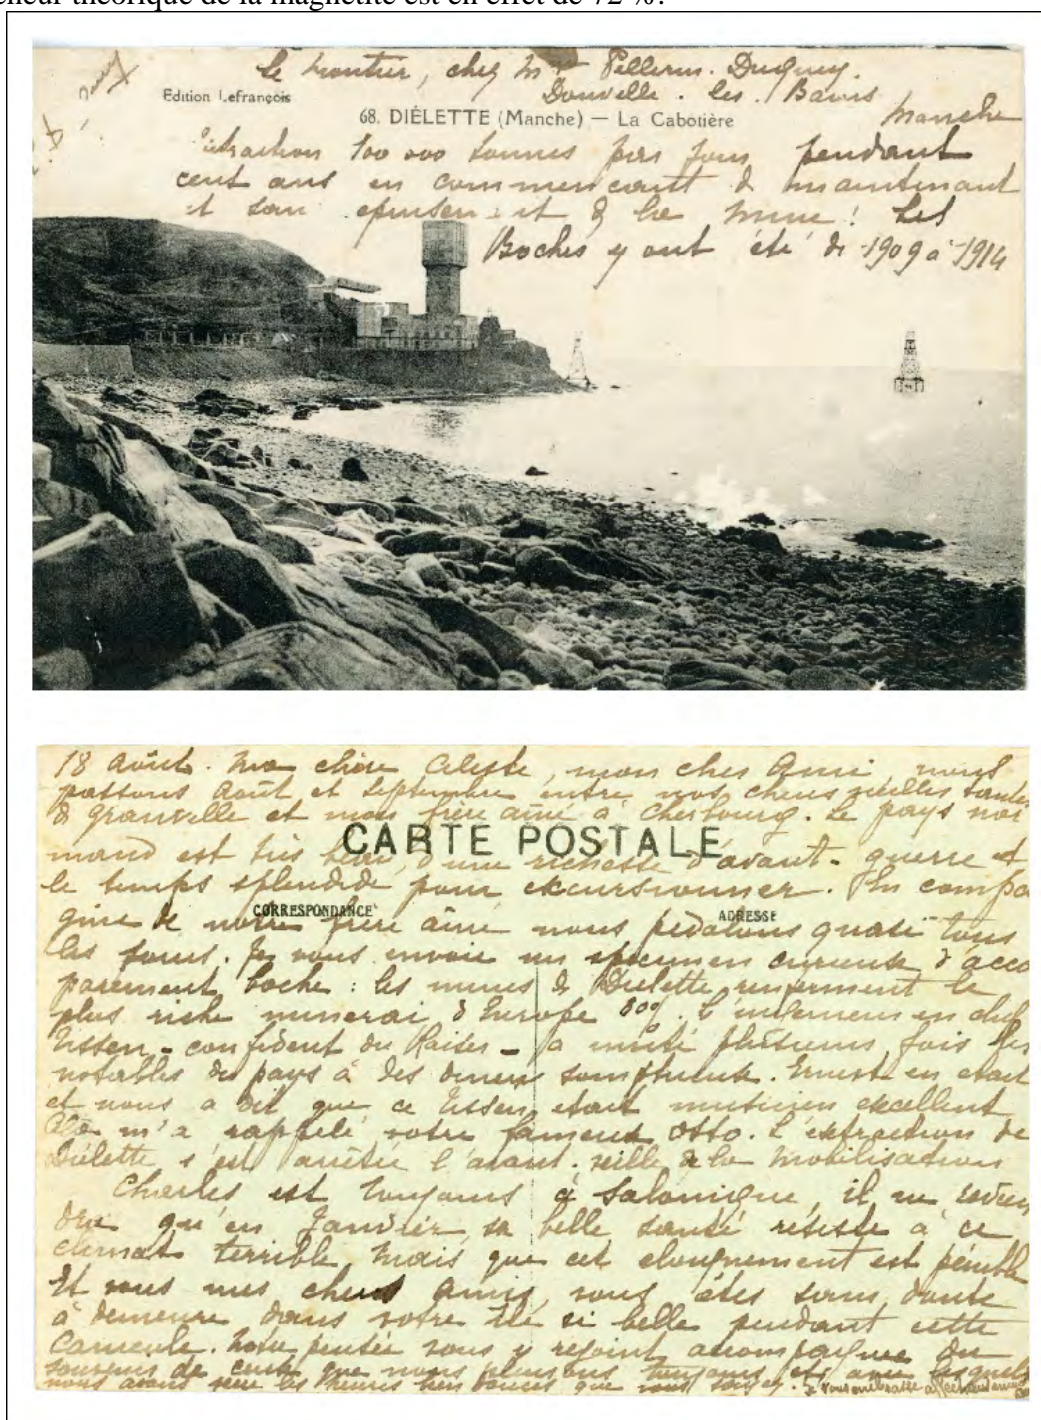 neur théorique de la magnétite est en effet de 72 %.
le moutier, chez Mme Pellerin. Duquey.
Donville. les. Bains
Manche
Edition Lefrançois
68. DIÉLETTE (Manche) — La Cabotière
100 000 tonnes par jour pendant
cent ans en commencant de maintenant
et san de la mine! Les
Boches y ont été de 1909 à 1914
18 Août. Ma chère Celeste, mon cher Ami, nous
passons Août et Septembre entre nos chères vieilles tantes
de Granville et mon frère ainé à Cherbourg. Le pays nor
mand est très beau, d'une richesse d'avant-guerre et
CARTE POSTALE
le temps splendide pour excursionner. En compa
CORRESPONDANCE
ADRESSE
gnie de notre frère ainé nous pédalons quasi tous
les jours. Je vous envoie un specimen curieux d'acca
parement boche : les mines de Dielette renferment le
plus riche minerai d'Europe 80%. L'ingénieur en chef
Tissen - confident du Kaiser - a invité plusieurs fois les
notables du pays à des diners somptueux. Ernest en etait
et nous a dit que ce Tissen etait musicien excellent
m'a rappelé votre fameux Otto. L'extraction de
Diélette s'est arrêtée l'avant-veille de la mobilisation
Charles est toujours à Salonique, il ne revien
dra qu'en Janvier, sa belle santé résiste à ce
climat terrible mais que cet eloignement est pénible
Et vous mes chers Amis, vous êtes sans doute
à demeure dans votre île si belle pendant cette
canicule. Notre pensée vous y rejoint accompagnée du
souvenir de ceux que nous pleurons toujours et avec lesquels
nous avons vécu les heures bien douces que vous savez. Je vous embrasse affectueusement